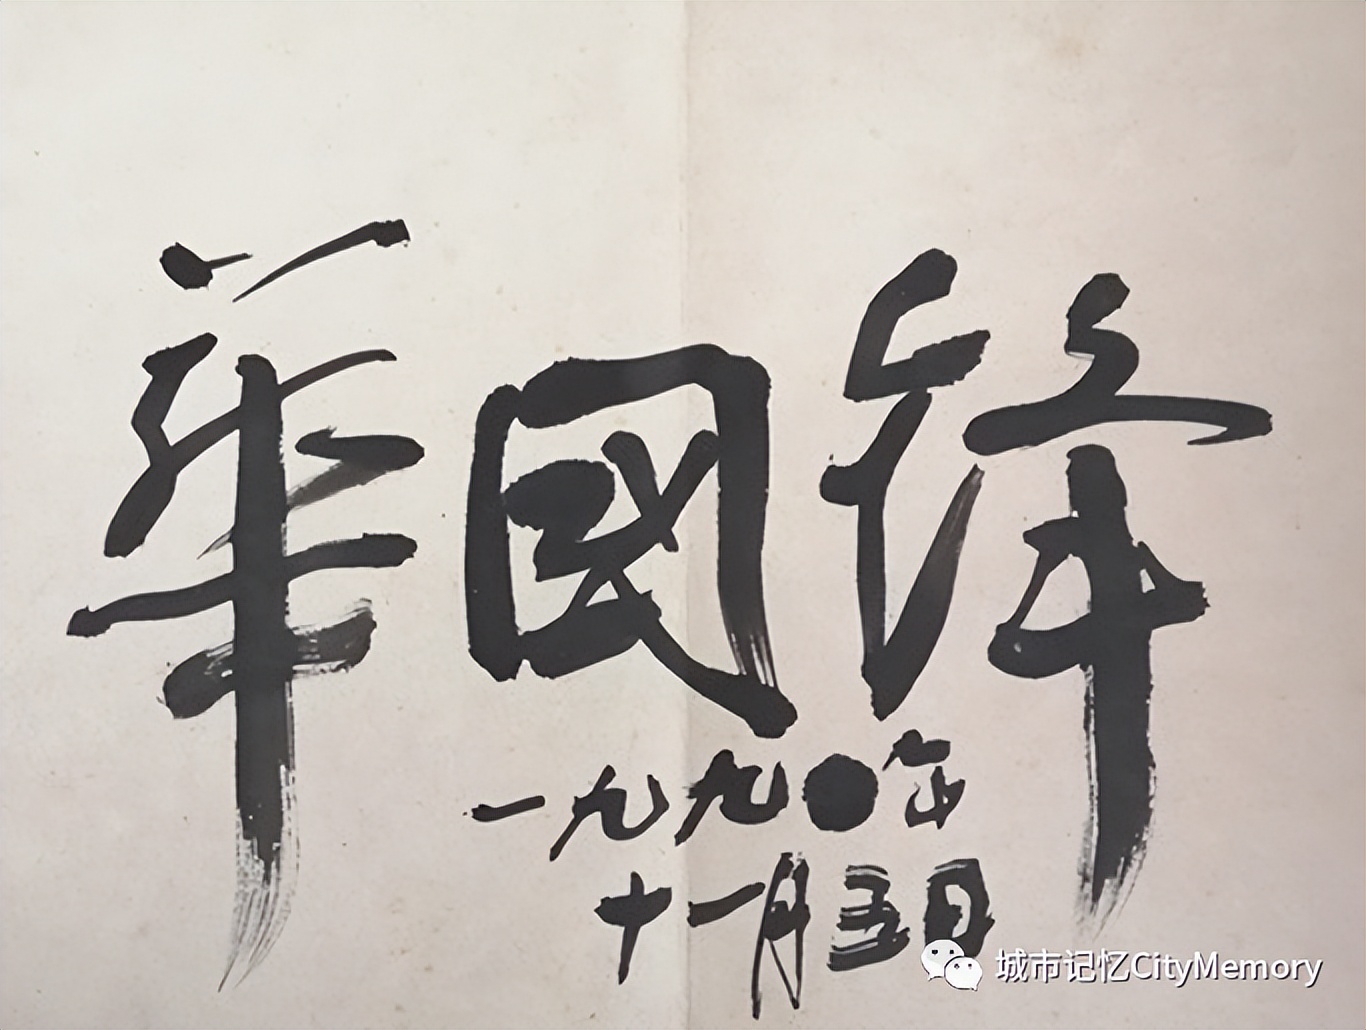 華國鋒
一九九〇年
十一月五日
城市记忆CityMemory